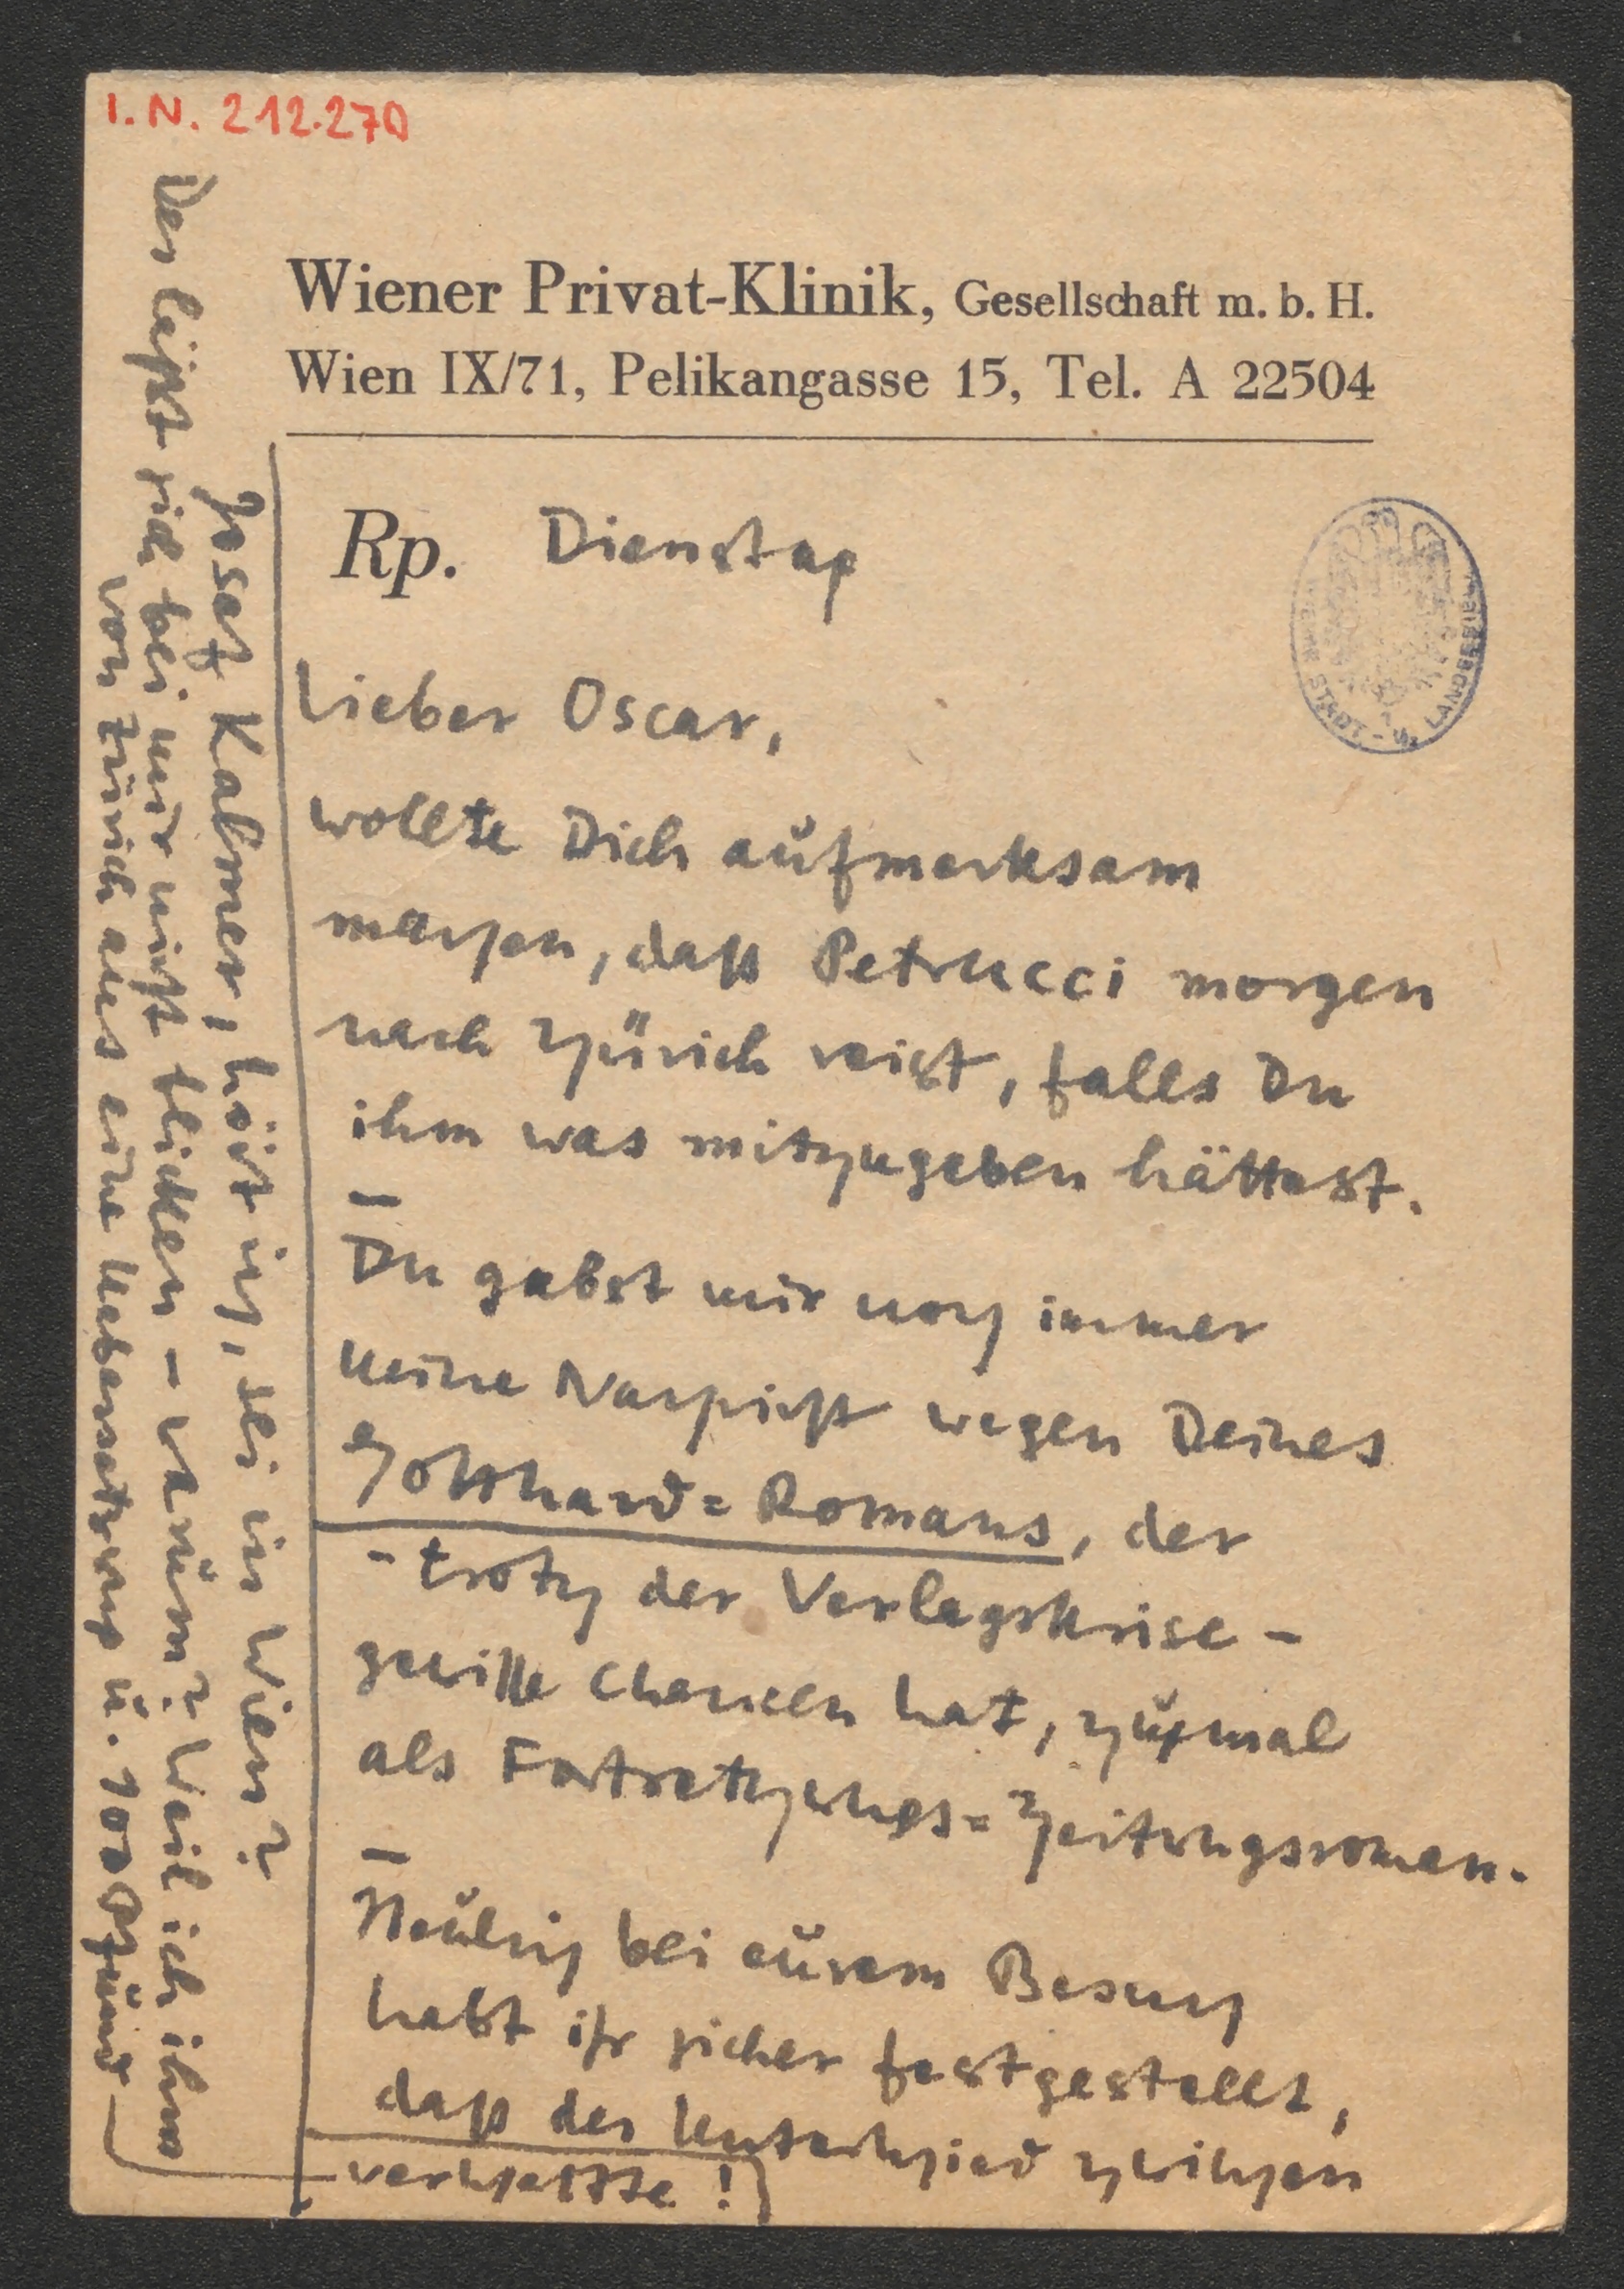 I.N. 212.270
Wiener Privat-Klinik, Gesellschaft m. b. H.
Wien IX/71, Pelikangasse 15, Tel. A 22504
Rp. Dienstag
STADT - u. LANDESBIBL
Lieber Oscar,
wollte Dich aufmerksam
machen, dass Petrucci morgen
nach Zürich reist, falls Du
ihm was mitzugeben hättest.
—
Du gabst mir noch immer
keine Nachricht wegen Deines
Gotthard=Romans, der
- trotz der Verlagskrise -
gewisse Chancen hat, zumal
als Fortsetzungs=Zeitungsroman.
—
Neulich bei eurem Besuch
habt ihr sicher festgestellt,
daß der Unterschied zwischen
Josef Kalmer, hört ich, sei in Wien?
Der lässt sich bei mir nicht blicken - warum? Weil ich ihm
von Zürich aus eine Uebersetzung u. 100 Pfund
verschaffte!